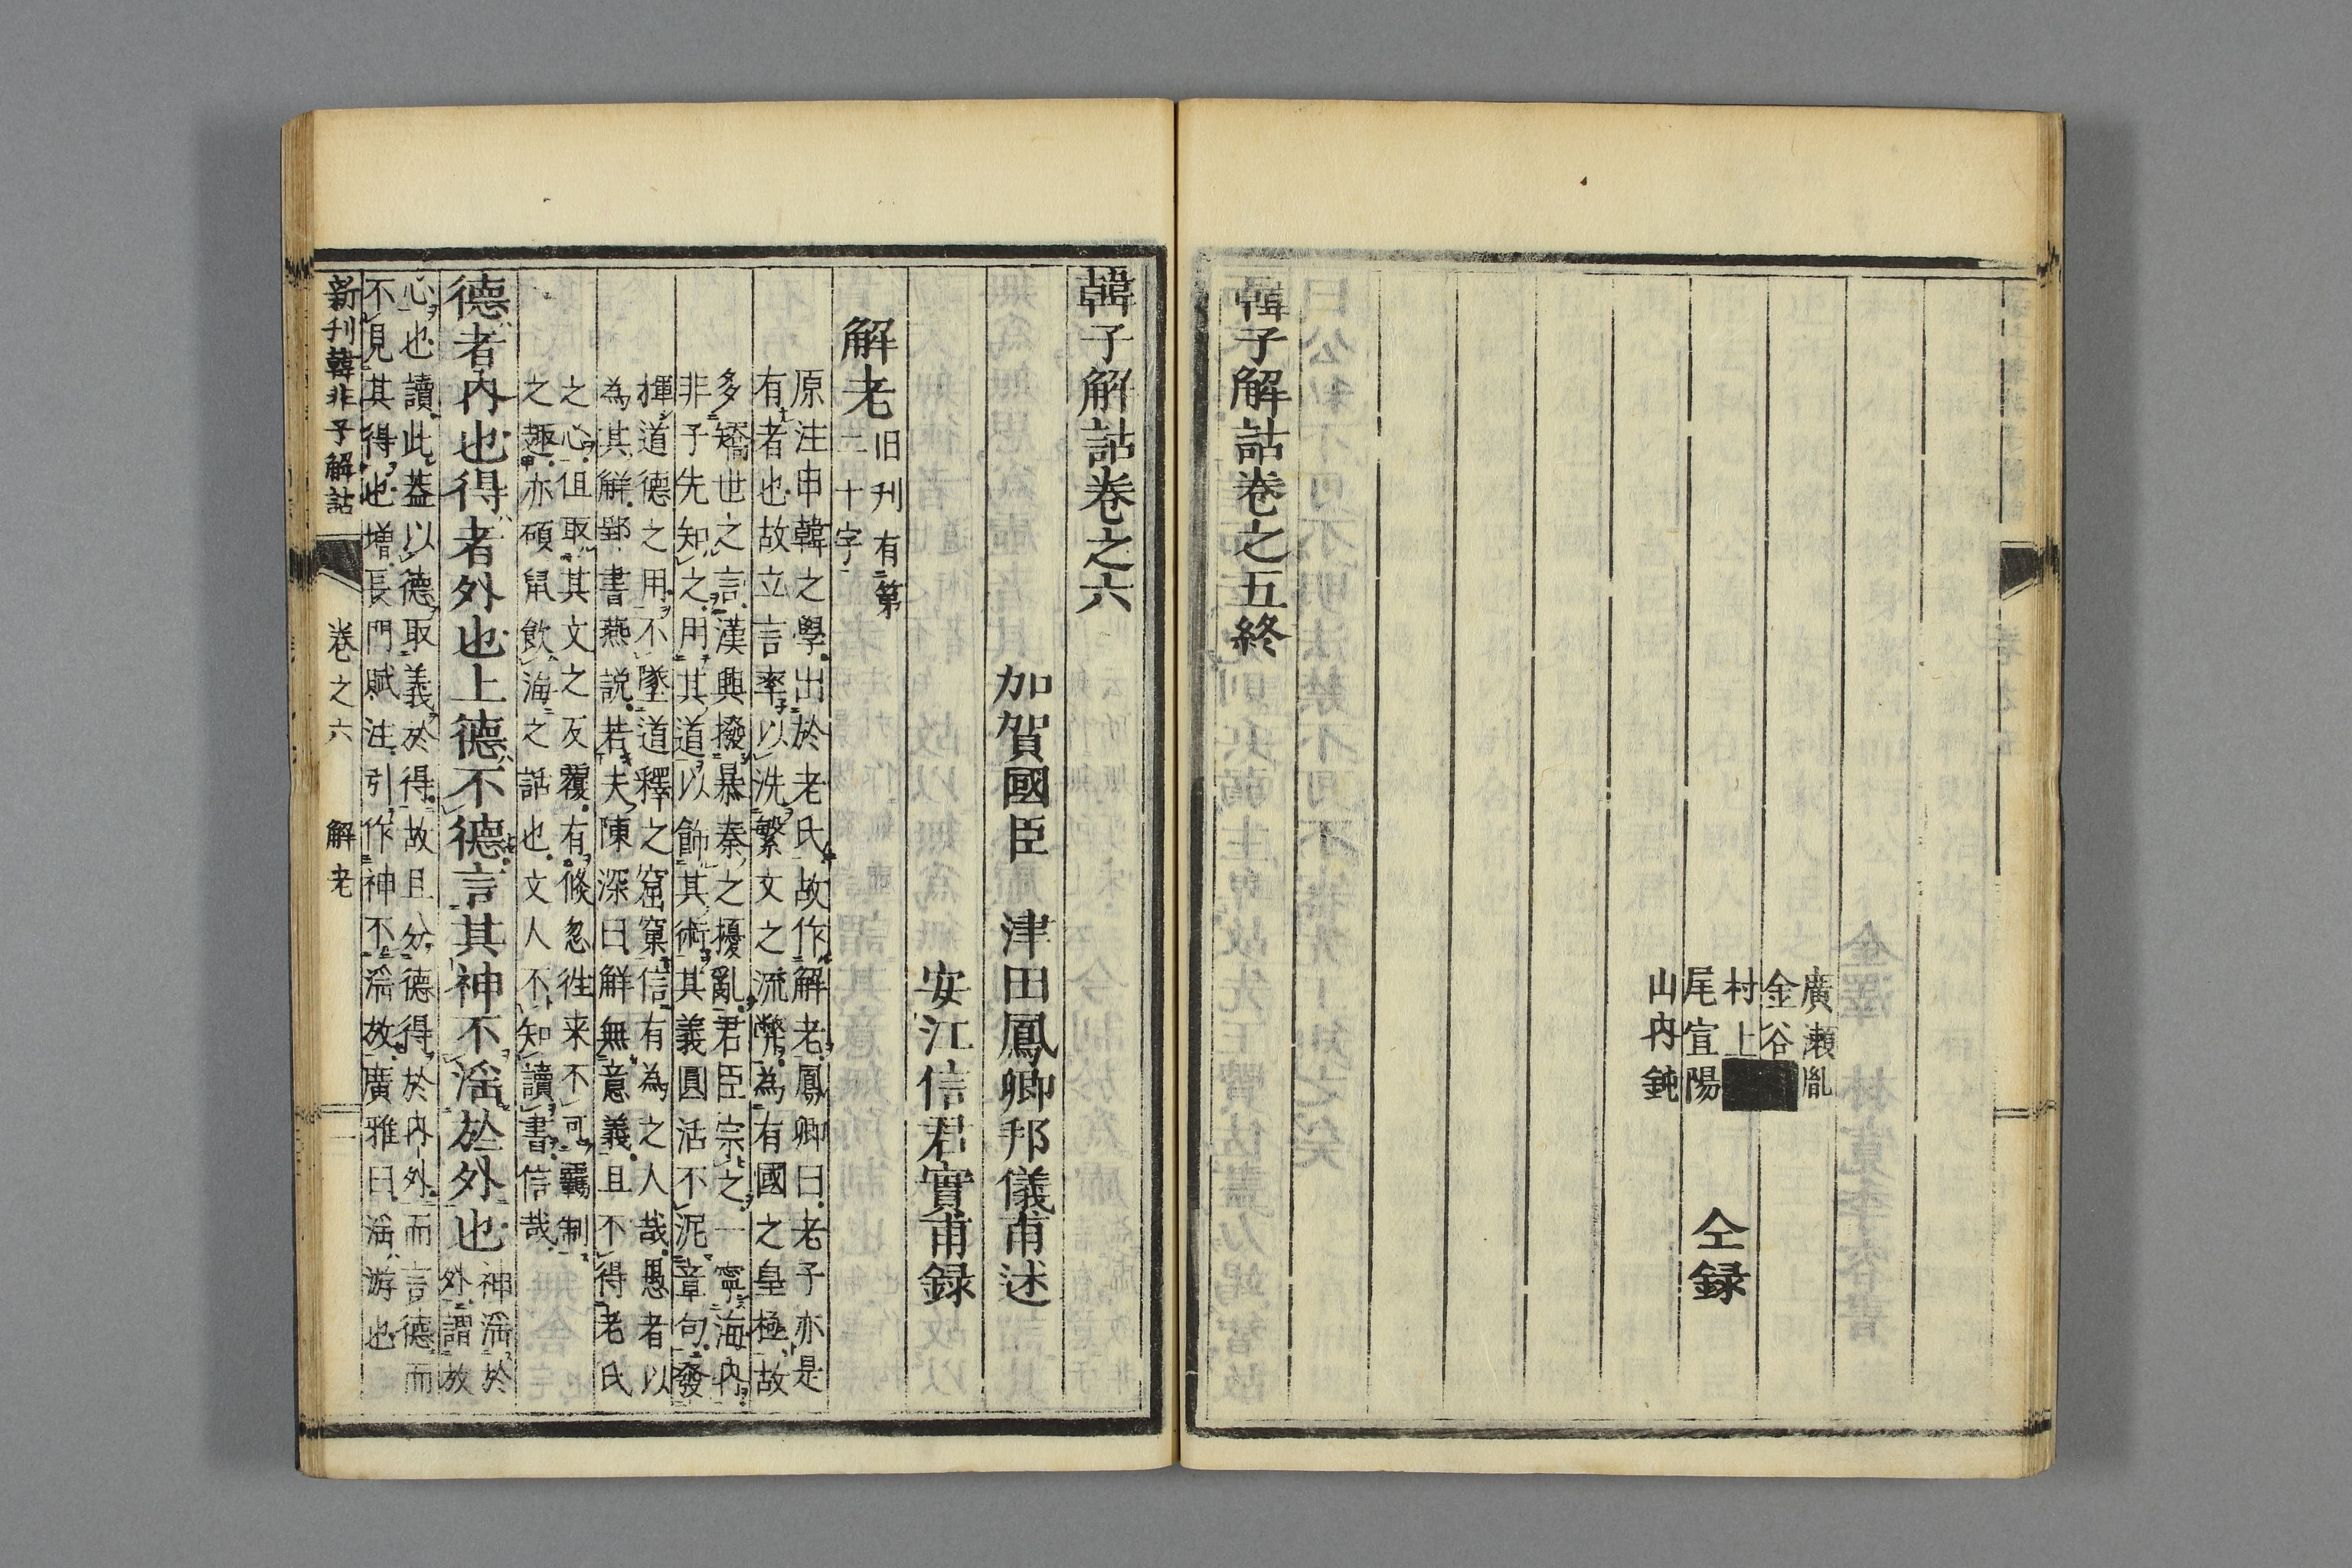 廣瀬胤
金谷
村上
尾宣陽
山内鈍
仝録
韓子解詁卷之五終
韓子解詁卷之六
加賀國臣 津田鳳卿邦儀甫述
安江信君實甫録
解老
旧刊有第
二十字
原注申韓之學出於老氏故作解老鳳卿曰老子亦是
有者也故立言率以洗繁文之流弊為有國之皇極故
多矯世之言漢興撥暴秦之擾亂君臣宗之一寧海內
非子先知之用其道以飾其術其義圓活不泥章句發
揮道德之用不墜道釋之窟窠信有為之人哉愚者以
為其解郢書燕説若夫陳深曰解無意義且不得老氏
之心徂取其文之反覆有倏忽徃来不可羈制
之趣亦碩鼠飲海之話也文人不知讀書信哉
德者內也得者外也上德不德言其神不淫於外也
神淫於
外謂放
心也讀此葢以德取義於得故且分德得於內外而言德而
不見其得也増長門賦注引作神不淫故廣雅曰淫游也
新刊韓非子解詁 卷之六 解老 一